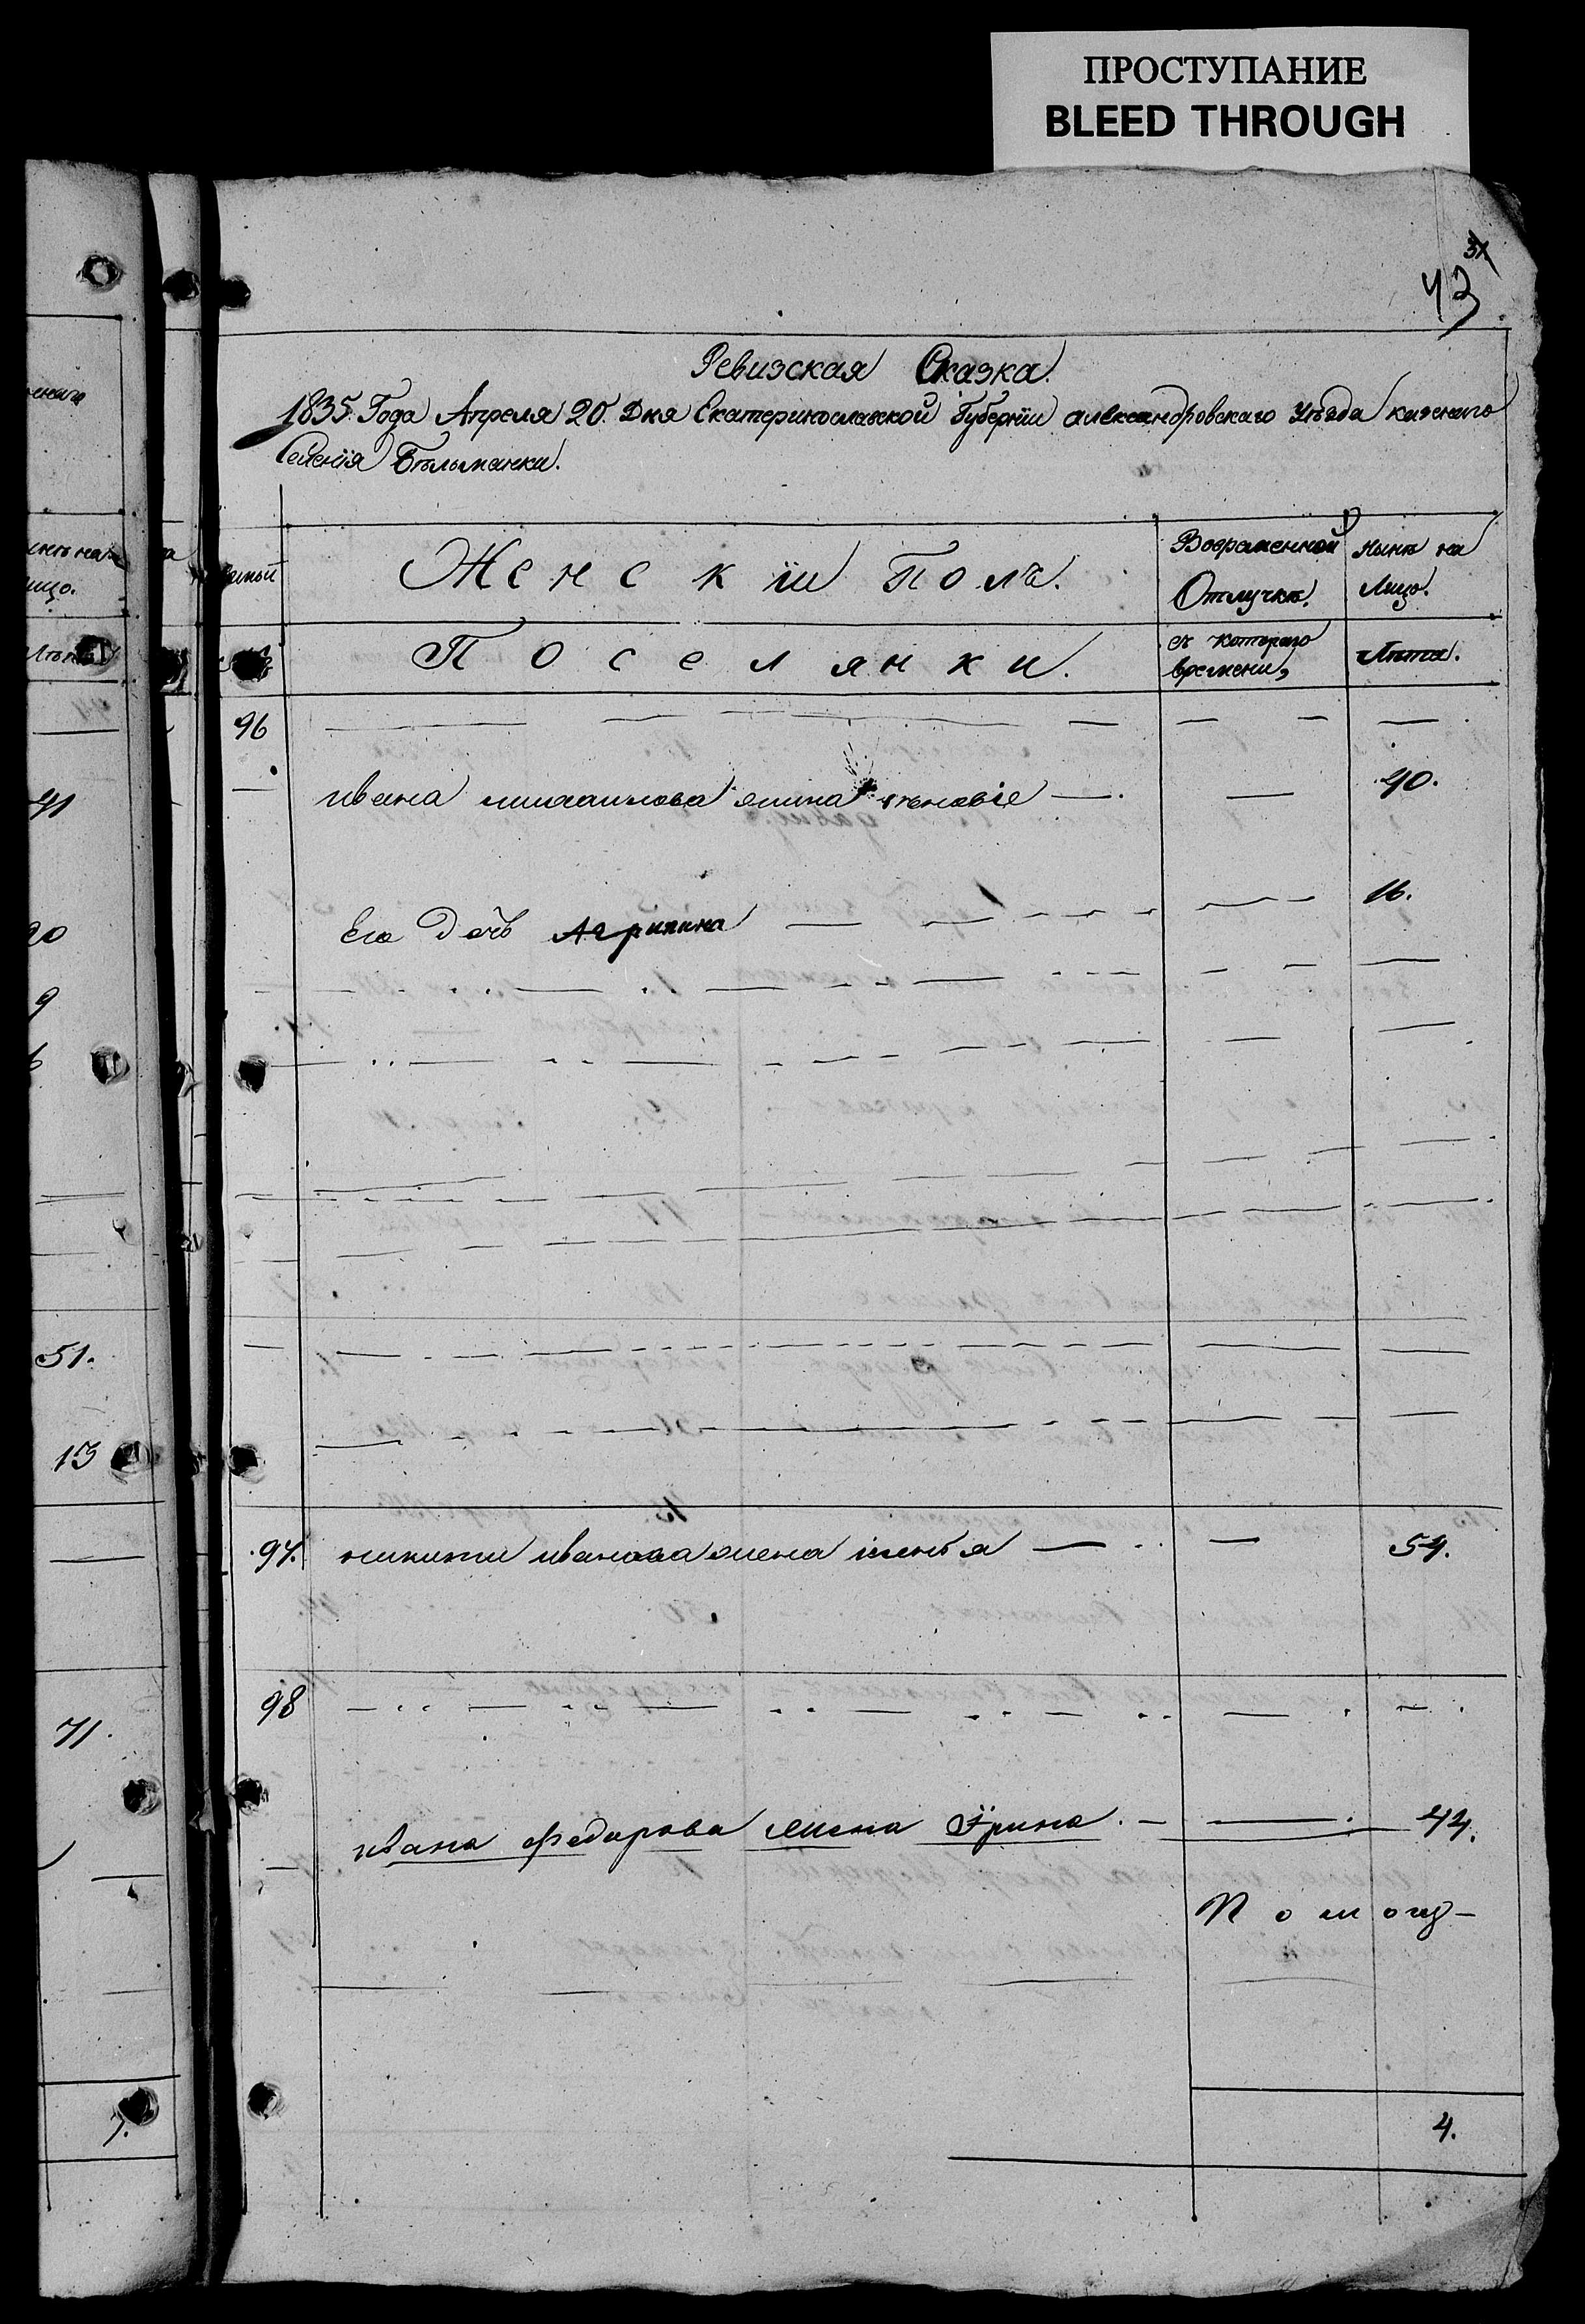 ПРОСТУПАНИЕ
BLEED THROUGH
43
Ревизская Сказка.
1835. Года Апреля 20. Дня Екатеринославской Губернїи александровскаго Уѣзда казеннаго
Селенїя Бѣльманки.
Женскїи Полъ.
Вовременной Отлучкѣ.
Нынѣ на Лицо.
Поселянки.
съ котораго времени,
Лѣта.
96
ивана михаилова жина 40.
Его Дочь Агрипина 16.
97. никити иванова жена 54.
98
ивана Федорова жена Їрина. 44.
41
20
9
51.
13
71.
7.
4.